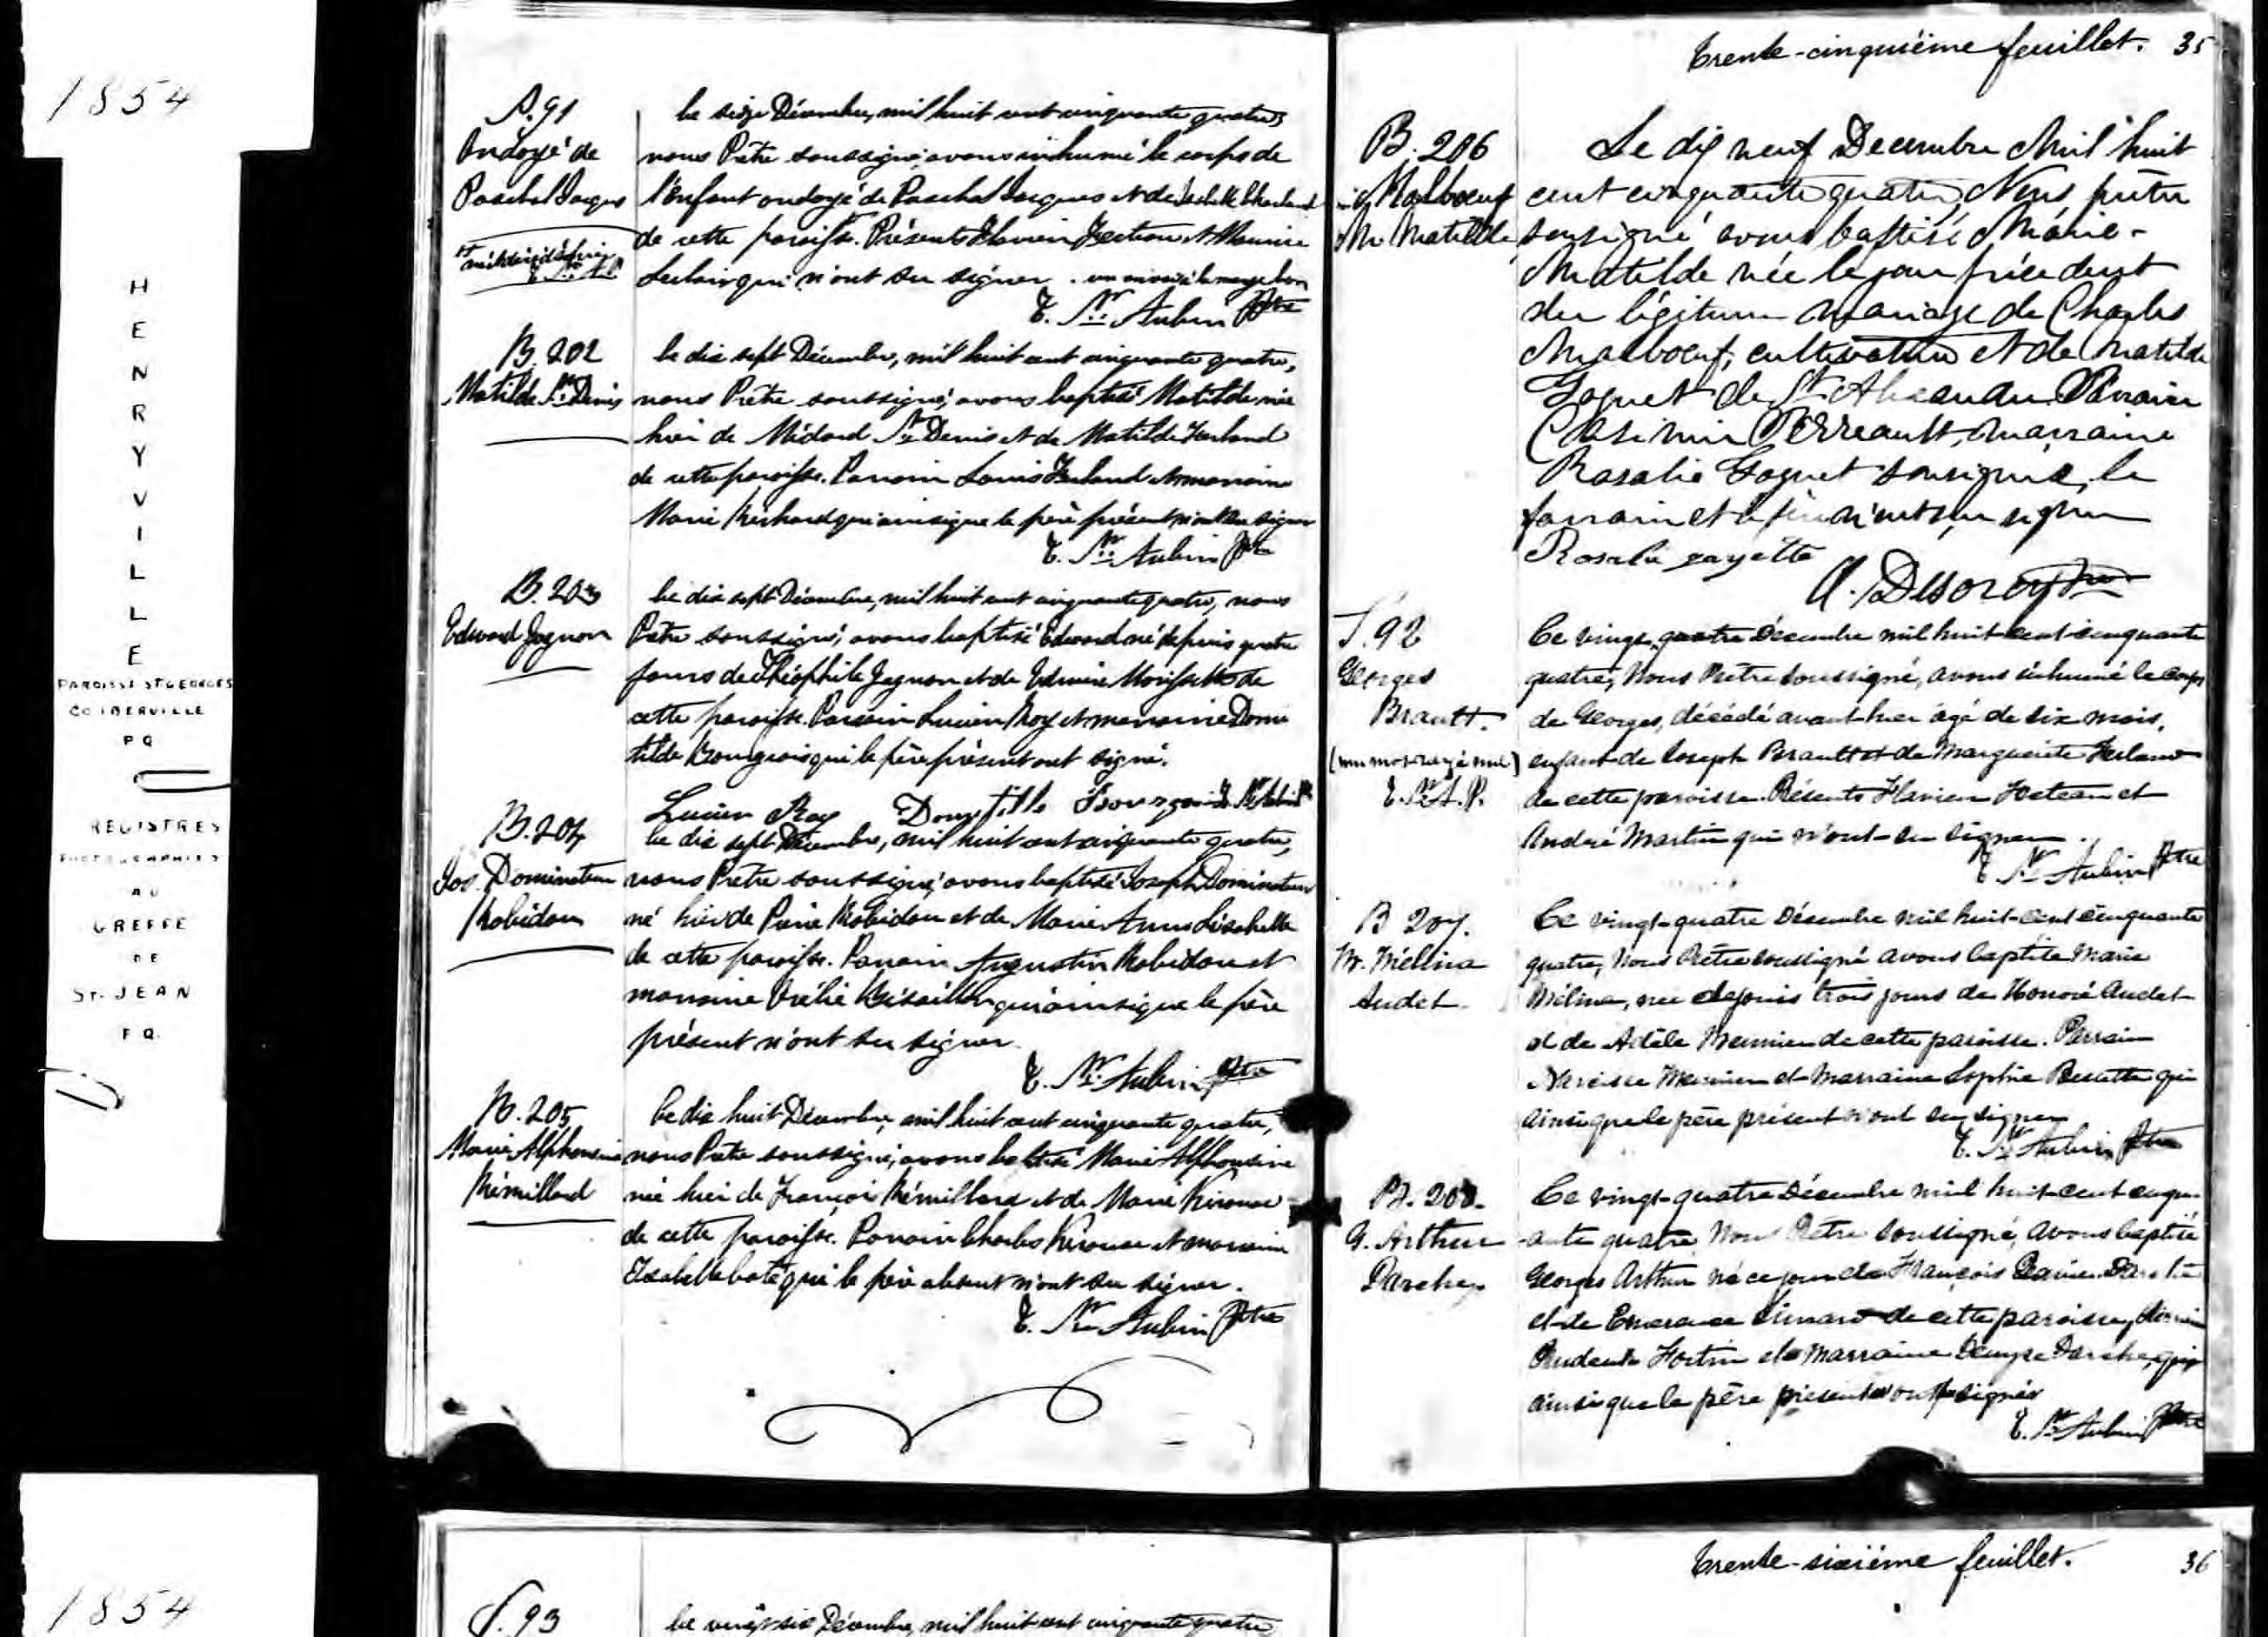 1854
HENRYVILLE
PAROISSE ST GEORGES
CO IBERVILLE
P Q
REGISTRES
PHOTOGRAPHIES
AU
GREFFE
DE
ST. JEAN
P Q.
S. 91
Ondoyé de
Paschal Jacques
Le seize Décembre, mil huit cent cinquante quatre
nous Prêtre soussigné, avons inhumé le corps de
l'enfant ondoyé de Paschal Jacques et de
de cette paroisse. Présents Flavien et Maurice
qui n'ont su signer.
E. St. Aubin Ptre
B. 202
Matilde St. Denis
Le dix sept Décembre, mil huit cent cinquante quatre,
nous Prêtre soussigné, avons baptisé Matilde née
hier de Médard St. Denis et de Matilde Ferland
de cette paroisse. Parrain Louis Ferland et marraine
Marie qui ainsi que le père présent n'ont su signer
E. St. Aubin Ptre
B. 203
Edward Gagnon
Le dix sept Décembre, mil huit cent cinquante quatre, nous
Prêtre soussigné, avons baptisé Edward né depuis quatre
jours de Théophile Gagnon et de de
cette paroisse. Parrain Lucien Roy et marraine Domi
tilde Bourgeois qui le père présent ont signé.
Lucien Roy Domitille Bourgeois E. St. Aubin Ptre
B. 204
Jos. Dominateur
Robidou
Le dix sept Décembre, mil huit cent cinquante quatre,
nous Prêtre soussigné, avons baptisé Joseph Dominateur
né hier de Pierre Robidou et de Marie Anne
de cette paroisse. Parrain Augustin Robidou et
marraine qui ainsi que le père
présent n'ont su signer.
E. St. Aubin Ptre
B. 205
Marie Alphonsine
Rémillard
Le dix huit Décembre, mil huit cent cinquante quatre,
nous Prêtre soussigné, avons baptisé Marie Alphonsine
née hier de François Rémillard et de Marie Kirouac
de cette paroisse. Parrain Charles Kirouac et marraine
Isabelle qui le père absent n'ont su signer.
E. St. Aubin Ptre
Trente-cinquième feuillet. 35
B. 206
Malboeuf
M. Matilde
Le dix neuf Decembre Mil huit
cent cinquante quatre, Nous prêtre
sousigné avons baptisé Marie-
Matilde née le jour précedent
du légitime Mariage de Charles
Malboeuf, cultivateur et de Matilde
Goguet de St Alexandre. Parrain
Casimir Perreault, marraine
Rosalie Goguet sousignée, le
parrain et le père n'ont su signer
Rosalie gayette
S. 92
Georges
Brault.
(un mot rayé nul)
E. St. A. P.
Ce vingt-quatre Décembre mil huit-cent-cinquante
quatre, Nous Prêtre soussigné, avons inhumé le corps
de Georges, décédé avant-hier âgé de six mois,
enfant de Joseph Brault et de Marguerite Ferland
de cette paroisse. Présents Flavien et
André Martin qui n'ont su signer.
E. St. Aubin Ptre
B 207.
M. Mélina
Audet
Ce vingt-quatre Décembre mil huit-cent cinquante
quatre, Nous Prêtre soussigné avons baptisé Marie
Mélina, née depuis trois jours de Honoré Audet
et de Adèle Meunier de cette paroisse. Parrain
Narcisse Meunier et Marraine Sophie qui
ainsi que le père présent n'ont su signer
E. St. Aubin Ptre
B. 208.
G. Arthur
Darche
Ce vingt-quatre Décembre mil huit-cent cinqu-
ante quatre Nous Prêtre soussigné, avons baptisé
Georges Arthur né ce jour de François Darche
et de de cette paroisse, Parrain
Prudent Fortin et Marraine Darche, qui
ainsi que le père présent ont signé
E. St. Aubin Ptre
1854
S. 93
Le vingt-six Décembre, mil huit cent cinquante quatre
Trente-sixième feuillet. 36